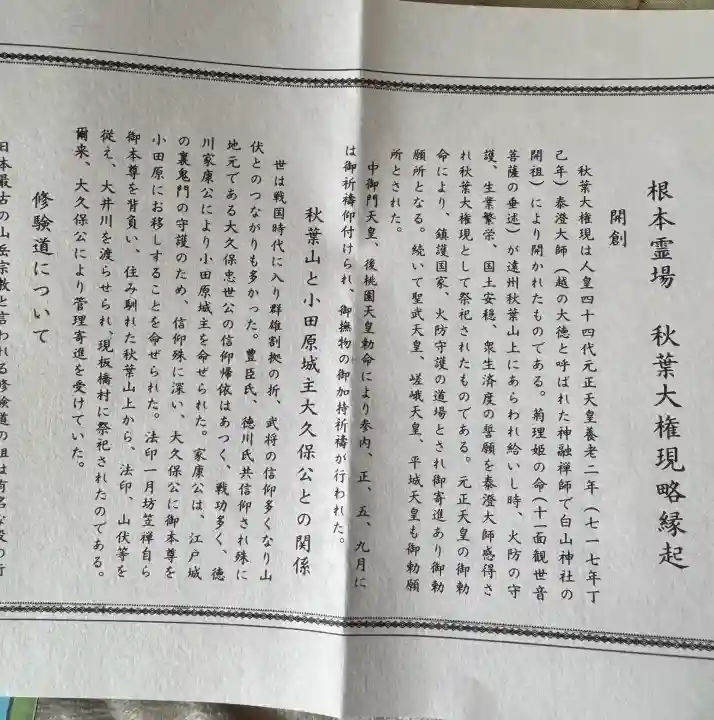 根本霊場　秋葉大権現略縁起
開創
秋葉大権現は人皇四十四代元正天皇養老二年（七一七年丁
己年）泰澄大師（越の大徳と呼ばれた神融禅師で白山神社の
開祖）により開かれたものである。菊理姫の命（十一面観世音
菩薩の垂迹）が遠州秋葉山上にあらわれ給いし時、火防の守
護、生業繁栄、国土安穏、衆生済度の誓願を泰澄大師感得さ
れ秋葉大権現として祭祀されたものである。元正天皇の御勅
命により、鎮護国家、火防守護の道場とされ御寄進あり御勅
願所となる。続いて聖武天皇、嵯峨天皇、平城天皇も御勅願
所とされた。
中御門天皇、後桃園天皇勅命により参内、正、五、九月に
は御祈禱仰付けられ、御撫物の御加持祈禱が行われた。
秋葉山と小田原城主大久保公との関係
世は戦国時代に入り群雄割拠の折、武将の信仰多くなり山
伏とのつながりも多かった。豊臣氏、徳川氏共信仰され殊に
地元である大久保忠世公の信仰帰依はあつく、戦功多く、徳
川家康公により小田原城主を命ぜられた。家康公は、江戸城
の裏鬼門の守護のため、信仰殊に深い、大久保公に御本尊を
小田原にお移しすることを命ぜられた。法印一月坊笠禅自ら
御本尊を背負い、住み馴れた秋葉山上から、法印、山伏等を
従え、大井川を渡らせられ、現板橋村に祭祀されたのである。
爾来、大久保公により管理寄進を受けていた。
修験道について
日本最古の山岳宗教と言われる修験道の祖は有名な役の行